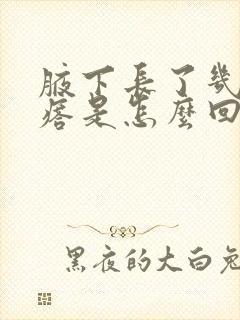 腋下長了幾
痞是怎麼回
黑夜的大白兔